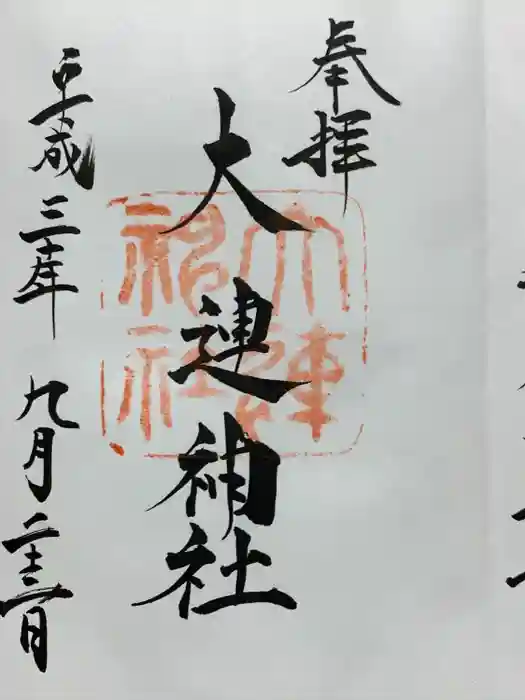 奉拝
大連神社
大連神社
平成三十年九月二十三日